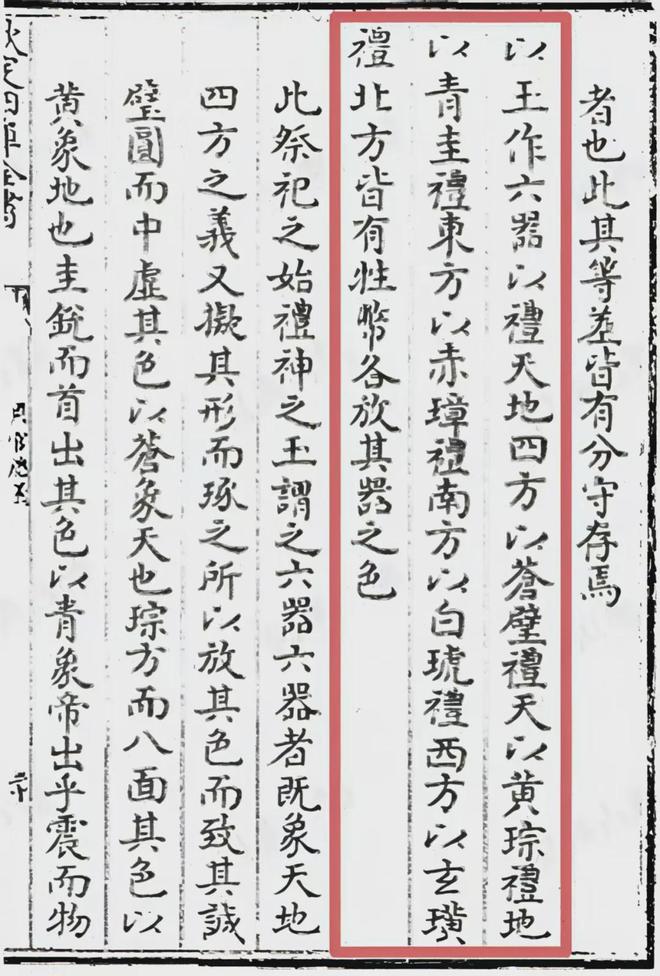 者也此其等差皆有分守存焉
以玉作六器以禮天地四方以蒼璧禮天以黄琮禮地
以青圭禮東方以赤璋禮南方以白琥禮西方以玄璜
禮北方皆有牲幣各放其器之色
此祭祀之始禮神之玉謂之六器六器者既象天地
四方之義又擬其形而琢之所以放其色而致其誠
璧圓而中虛其色以蒼象天也琮方而八面其色以
黄象地也圭銳而首出其色以青象帝出乎震而物
欽定四庫全書